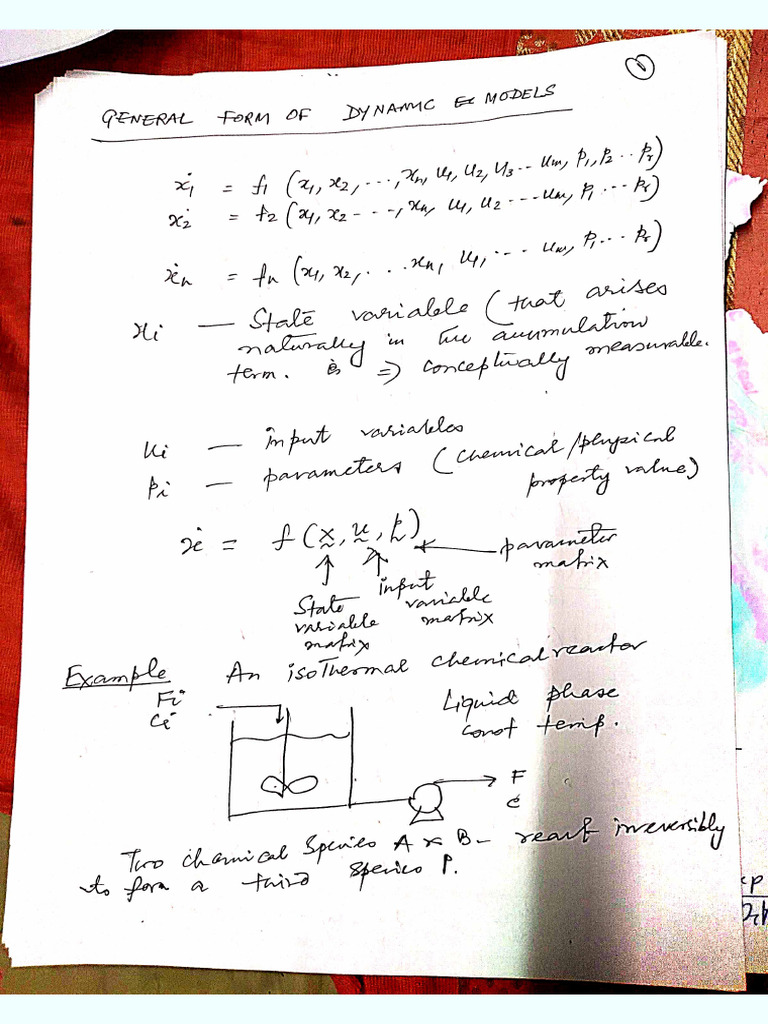 ①
GENERAL FORM OF DYNAMIC MODELS
ẋ₁ = f₁ (x₁, x₂, ..., xₙ, u₁, u₂, u₃ .. uₘ, p₁, p₂ .. pᵣ)
ẋ₂ = f₂ (x₁, x₂ - - -, xₙ, u₁, u₂ --- uₘ, p₁ ... pᵣ)
ẋₙ = fₙ (x₁, x₂, . . . xₙ, u₁, ... uₘ, p₁ ... pᵣ)
xi — State variable (that arises
naturally in the accumulation
term. ⇒ conceptually measurable.
ui — input variables
pi — parameters (chemical/physical
property value)
ẋ = f (x, u, p) ← parameter
matrix
↑ ↑ input
State variable
variable matrix
matrix
Example An isothermal chemical reactor
Fi
Ci
Liquid phase
const temp.
F
C
Two chemical species A & B - react irreversibly
to form a third species P.